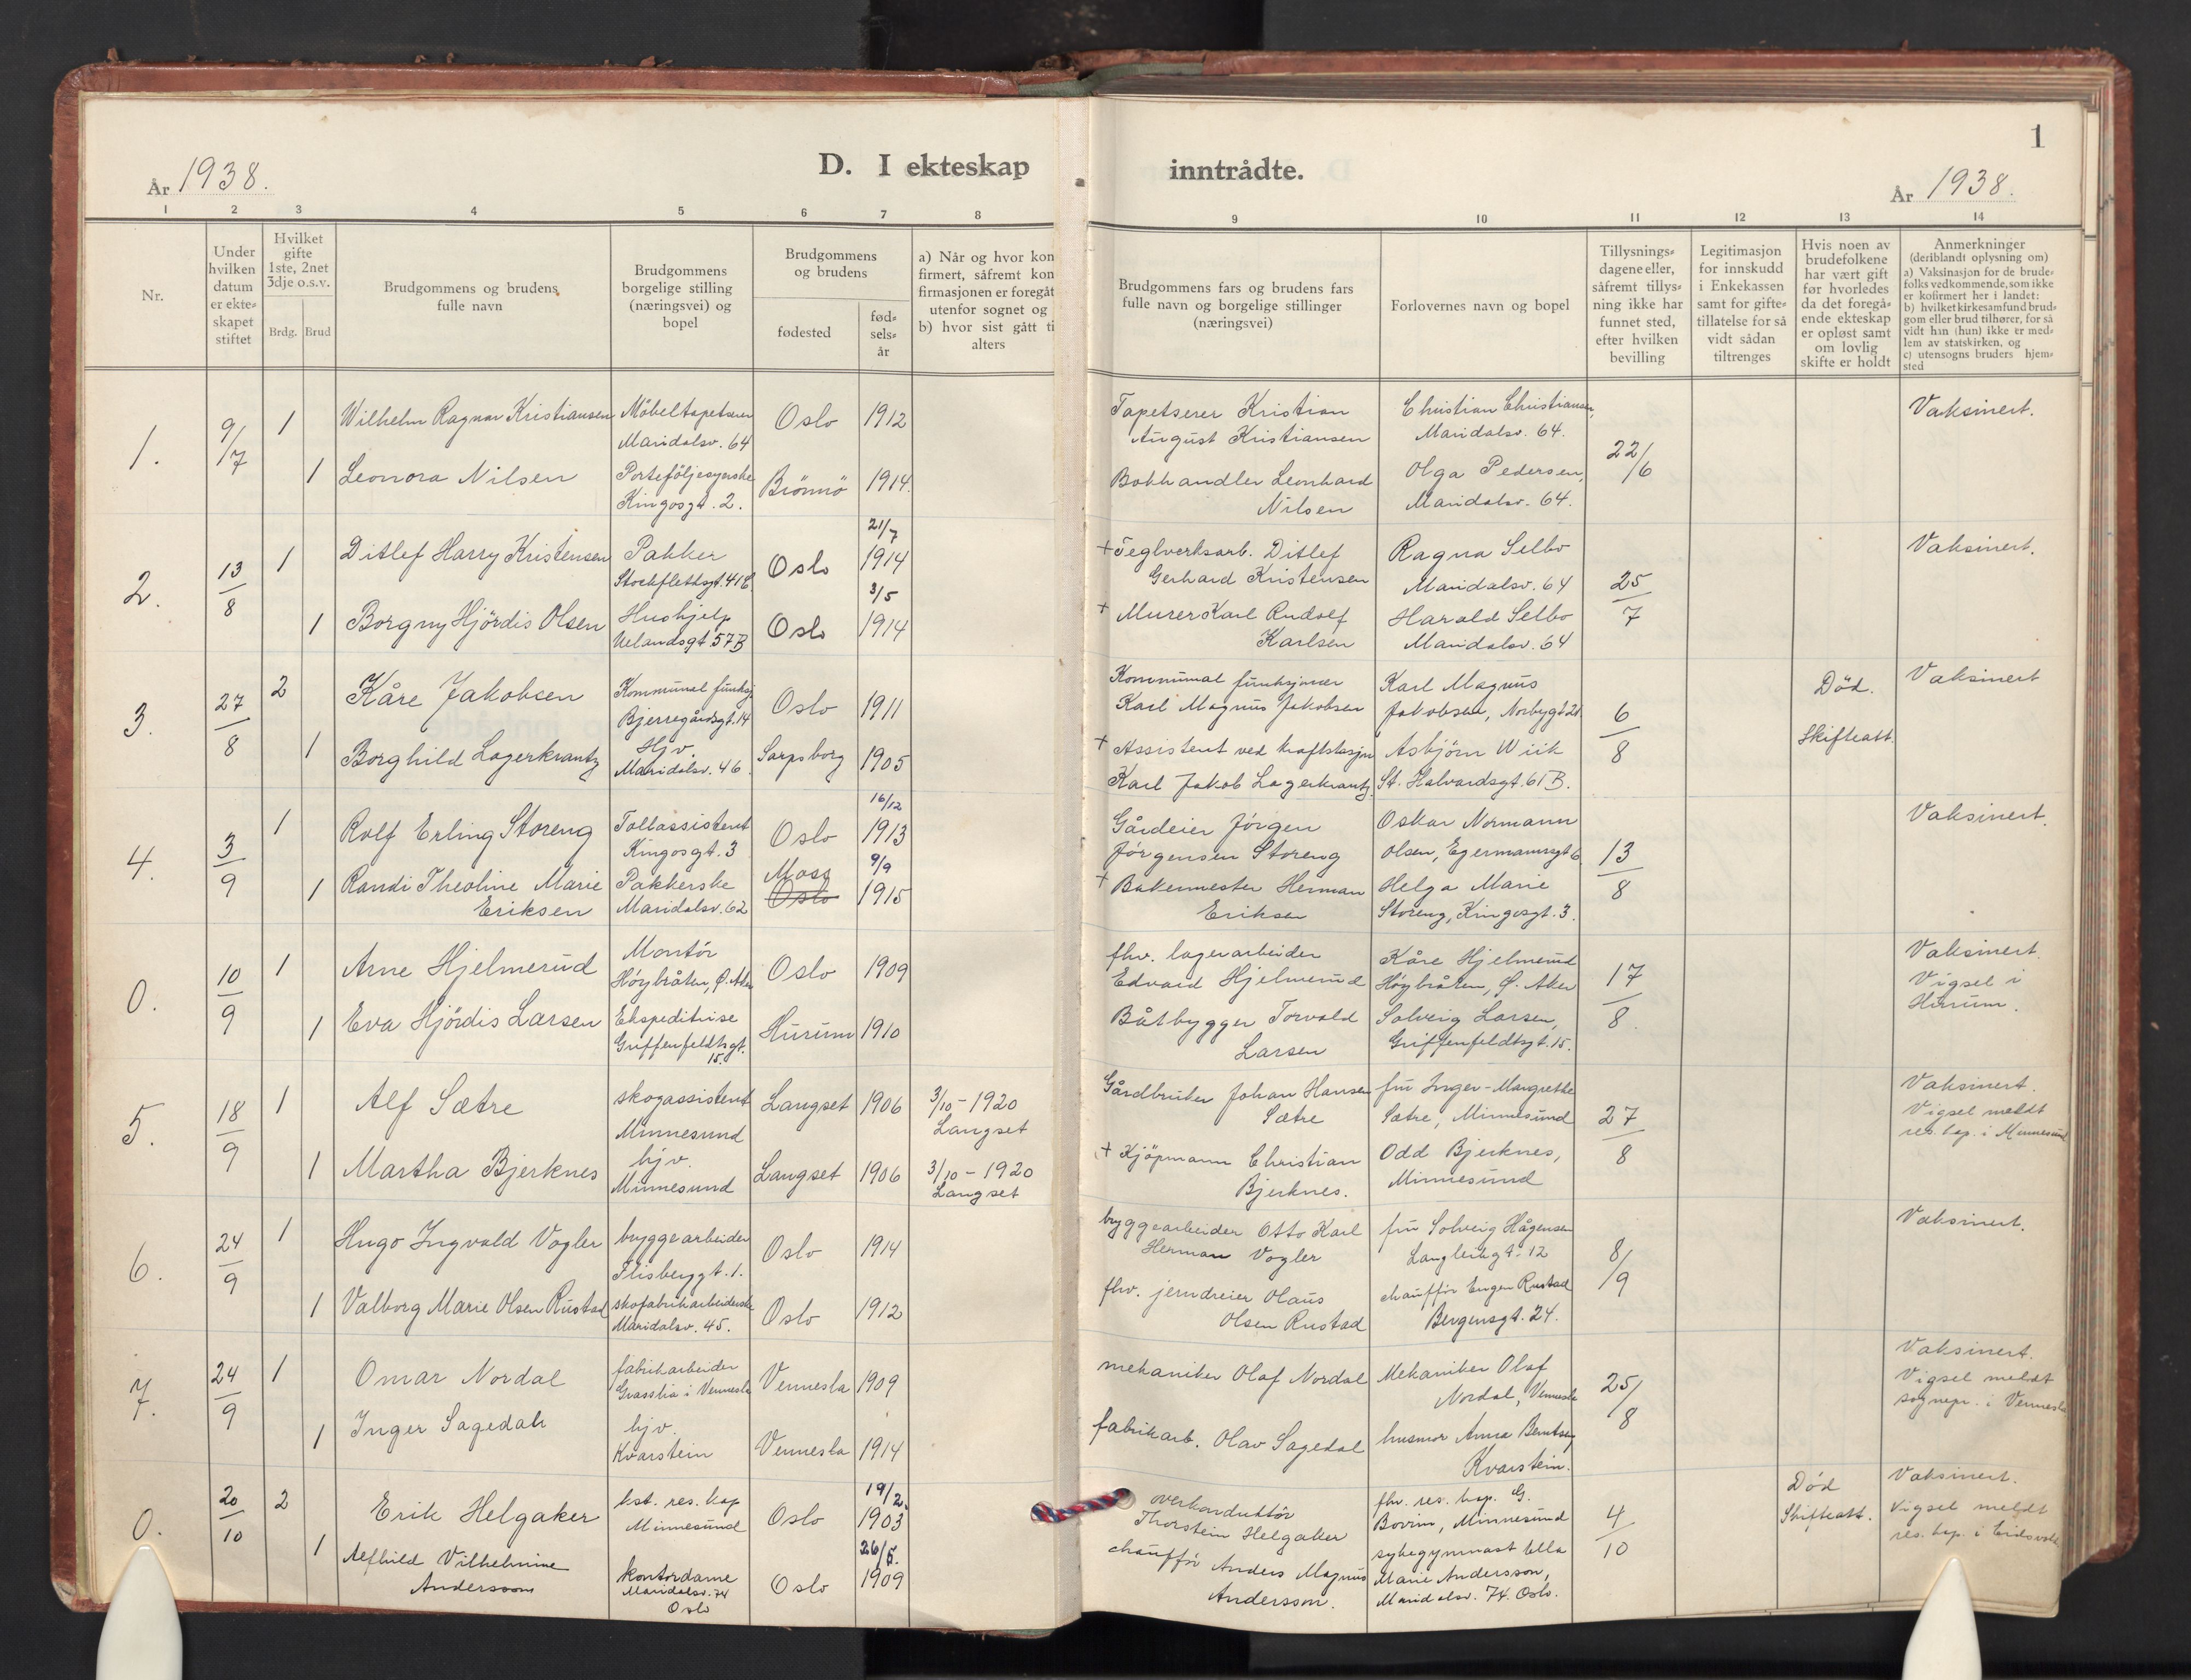 1
År 1938.
D. I ekteskap inntrådte.
År 1938.
1 2 3 4 5 6 7 8 9 10 11 12 13 14
Nr.
Under
hvilken
datum
er ekte-
skapet
stiftet
Hvilket
gifte
1ste, 2net
3dje o.s.v.
Brdg. Brud
Brudgommens og brudens
fulle navn
Brudgommens
borgelige stilling
(næringsvei) og
bopel
Brudgommens
og brudens
fødested
fød-
sels-
år
a) Når og hvor kon
firmert, såfremt kon
firmasjonen er foregåt
utenfor sognet og
b) hvor sist gått ti
alters
Brudgommens fars og brudens fars
fulle navn og borgelige stillinger
(næringsvei)
Forlovernes navn og bopel
Tillysnings-
dagene eller,
såfremt tillys-
ning ikke har
funnet sted,
efter hvilken
bevilling
Legitimasjon
for innskudd
i Enkekassen
samt for gifte-
tillatelse for så
vidt sådan
tiltrenges
Hvis noen av
brudefolkene
har vært gift
før hvorledes
da det foregå-
ende ekteskap
er opløst samt
om lovlig
skifte er holdt
Anmerkninger
(deriblandt oplysning om)
a) Vaksinasjon for de brude-
folks vedkommende, som ikke
er kofirmert her i landet:
b) hvilket kirkesamfund brud-
gom eller brud tilhører, for så
vidt han (hun) ikke er med-
lem av statskirken, og
c) utensogns bruders hjem-
sted
1.
9/7
1
Wilhelm Ragnar Kristiansen
Möbeltapetserer
Maridalsv. 64
Oslo
1912
Tapetserer Kristian
August Kristiansen
Christian Christiansen,
Maridalsv. 64.
22/6
Vaksinert.
1
Leonora Nilsen
Porteföljesyerske
Kingosgt. 2.
Brönnö
1914.
Bokhandler Leonhard
Nilsen
Olga Pedersen,
Maridalsv. 64.
2.
13/8
1
Ditlef Harry Kristensen
Pakker
Stockflethsgt. 41 E
Oslo
21/7
1914
+ Teglverksarb. Ditlef
Gerhard Kristensen
Ragna Selbo
Maridalsv. 64
25/7
Vaksinert.
1
Borgny Hjördis Olsen
Hushjelp
Uelandsgt. 57B
Oslo
3/5
1914
+ Murer Karl Rudolf
Karlsen
Harald Selbo
Maridalsv. 64
3.
27/8
2
Kåre Jakobsen
Kommunal funksj.
Bjerregårdsgt. 14
Oslo
1911
Kommunal funksjonær
Karl Magnus Jakobsen
Karl Magnus
Jakobsen, Norbygt 21
6/8
Död.
Skifteatt.
Vaksinert
1
Borghild Lagerkrantz
Hjv.
Maridalsv. 46
Sarpsborg
1905
+ Assistent ved kraftstasjon
Karl Jakob Lagerkrantz
Asbjörn Wiik
St. Halvardsgt. 61 B.
4.
3/9
1
Rolf Erling Storeng
Tollassistent
Kingosgt. 3
Oslo
16/12
1913
Gårdeier Jörgen
Jörgensen Storeng
Oskar Normann
Olsen, Egermannsgt 6
13/8
Vaksinert.
1
Randi Theoline Marie
Eriksen
Pakkerske
Maridalsv. 62
Moss
Oslo
9/9
1915
+ Bakermester Herman
Eriksen
Helga Marie
Storeng, Kingosgt. 3.
0.
10/9
1
Arne Hjelmerud
Montör
Höybråten, Ø. Aker
Oslo
1909
fhv. lagerarbeider
Edvard Hjelmerud
Kåre Hjelmerud
Höybråten, Ø. Aker
17/8.
Vaksinert.
Vigsel i
Hurum.
1
Eva Hjördis Larsen
Ekspeditrise
Griffenfeldtsgt.
15.
Hurum
1910
Båtbygger Torvald
Larsen
Solveig Larsen,
Griffenfeldtsgt. 15.
5.
18/9
1
Alf Sætre
skogassistent
Minnesund
Langset
1906
3/10 - 1920
Langset
Gårdbruker Johan Hansen
Sætre
fru Inger-Margrethe
Sætre, Minnesund
27/8
Vaksinert.
Vigsel meldt
res. kap. i Minnesund
1
Martha Bjerknes
hjv.
Minnesund
Langset
1906
3/10 - 1920
Langset
+ Kjöpmann Christian
Bjerknes.
Odd Bjerknes,
Minnesund
6.
24/9
1
Hugo Ingvald Vogler
byggearbeider
Flisberggt. 1.
Oslo
1914
byggearbeider Otto Karl
Herman Vogler
fru Solveig Hågensen
Langleikgt. 12
8/9
Vaksinert.
1
Valborg Marie Olsen Rustad
skofabrikarbeiderske
Maridalsv. 45.
Oslo
1912
fhv. jerndreier Olaus
Olsen Rustad
chaufför Eugen Rustad
Bergensgt. 24.
7.
24/9
1
Omar Nordal
fabrikarbeider
Grasslia i Vennesla
Vennesla
1909
mekaniker Olaf Nordal
Mekaniker Olaf
Nordal, Vennesla
25/8
Vaksinert.
Vigsel meldt
sognepr. i Vennesla
1
Inger Sagedal
hjv.
Kvarstein
Vennesla
1914
fabrikarb. Olav Sagedal
husmor Anna Berntsen
Kvarstein.
0.
20/10
2
Erik Helgaker
kst. res. kap
Minnesund
Oslo
19/2.
1903
overkonduktör
Thorstein Helgaker
fhv. res. kap. G.
Bovim, Minnesund
4/10
Död
Skifteatt.
Vaksinert.
Vigsel meldt
res. kap. i Eidsvold
1
Alfhild Vilhelmine
Andersson
kontordame
Maridalsv. 74
Oslo
Oslo
26/5.
1909
chaufför Anders Magnus
Andersson.
sykegymnast Ella
Marie Andersson,
Maridalsv. 74. Oslo.